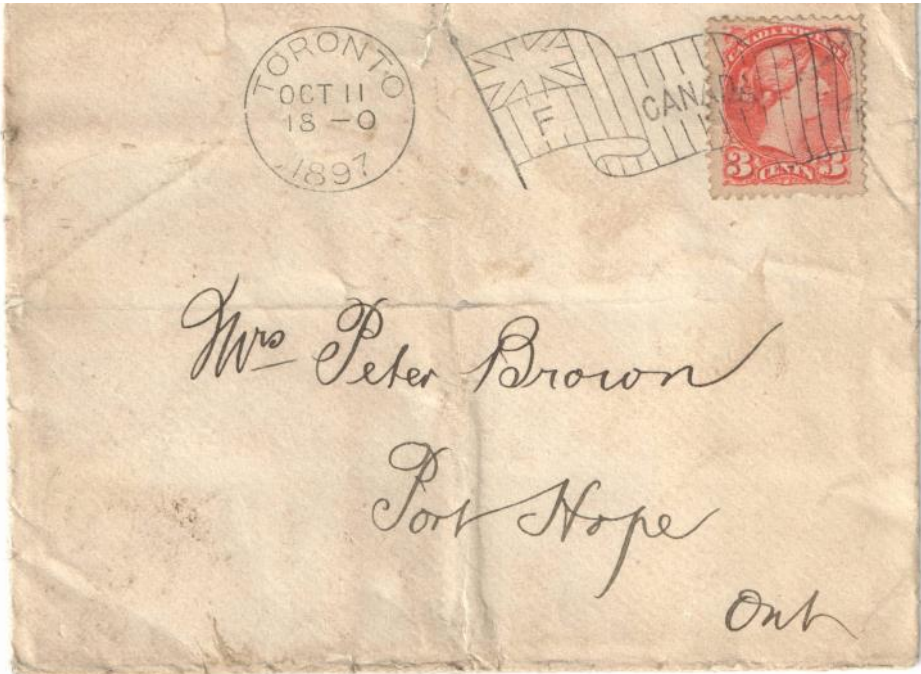 TORONTO
OCT 11
18 - 0
1897
F
CANADA
CANADA POSTAGE
3 CENTS 3
Mrs Peter Brown
Port Hope
Ont